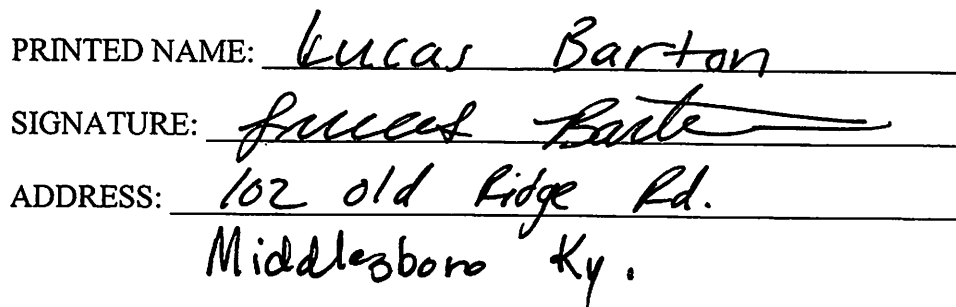 PRINTED NAME: Lucas Barton
SIGNATURE: Lucas Barton
ADDRESS: 102 old Ridge Rd.
Middlesboro Ky.